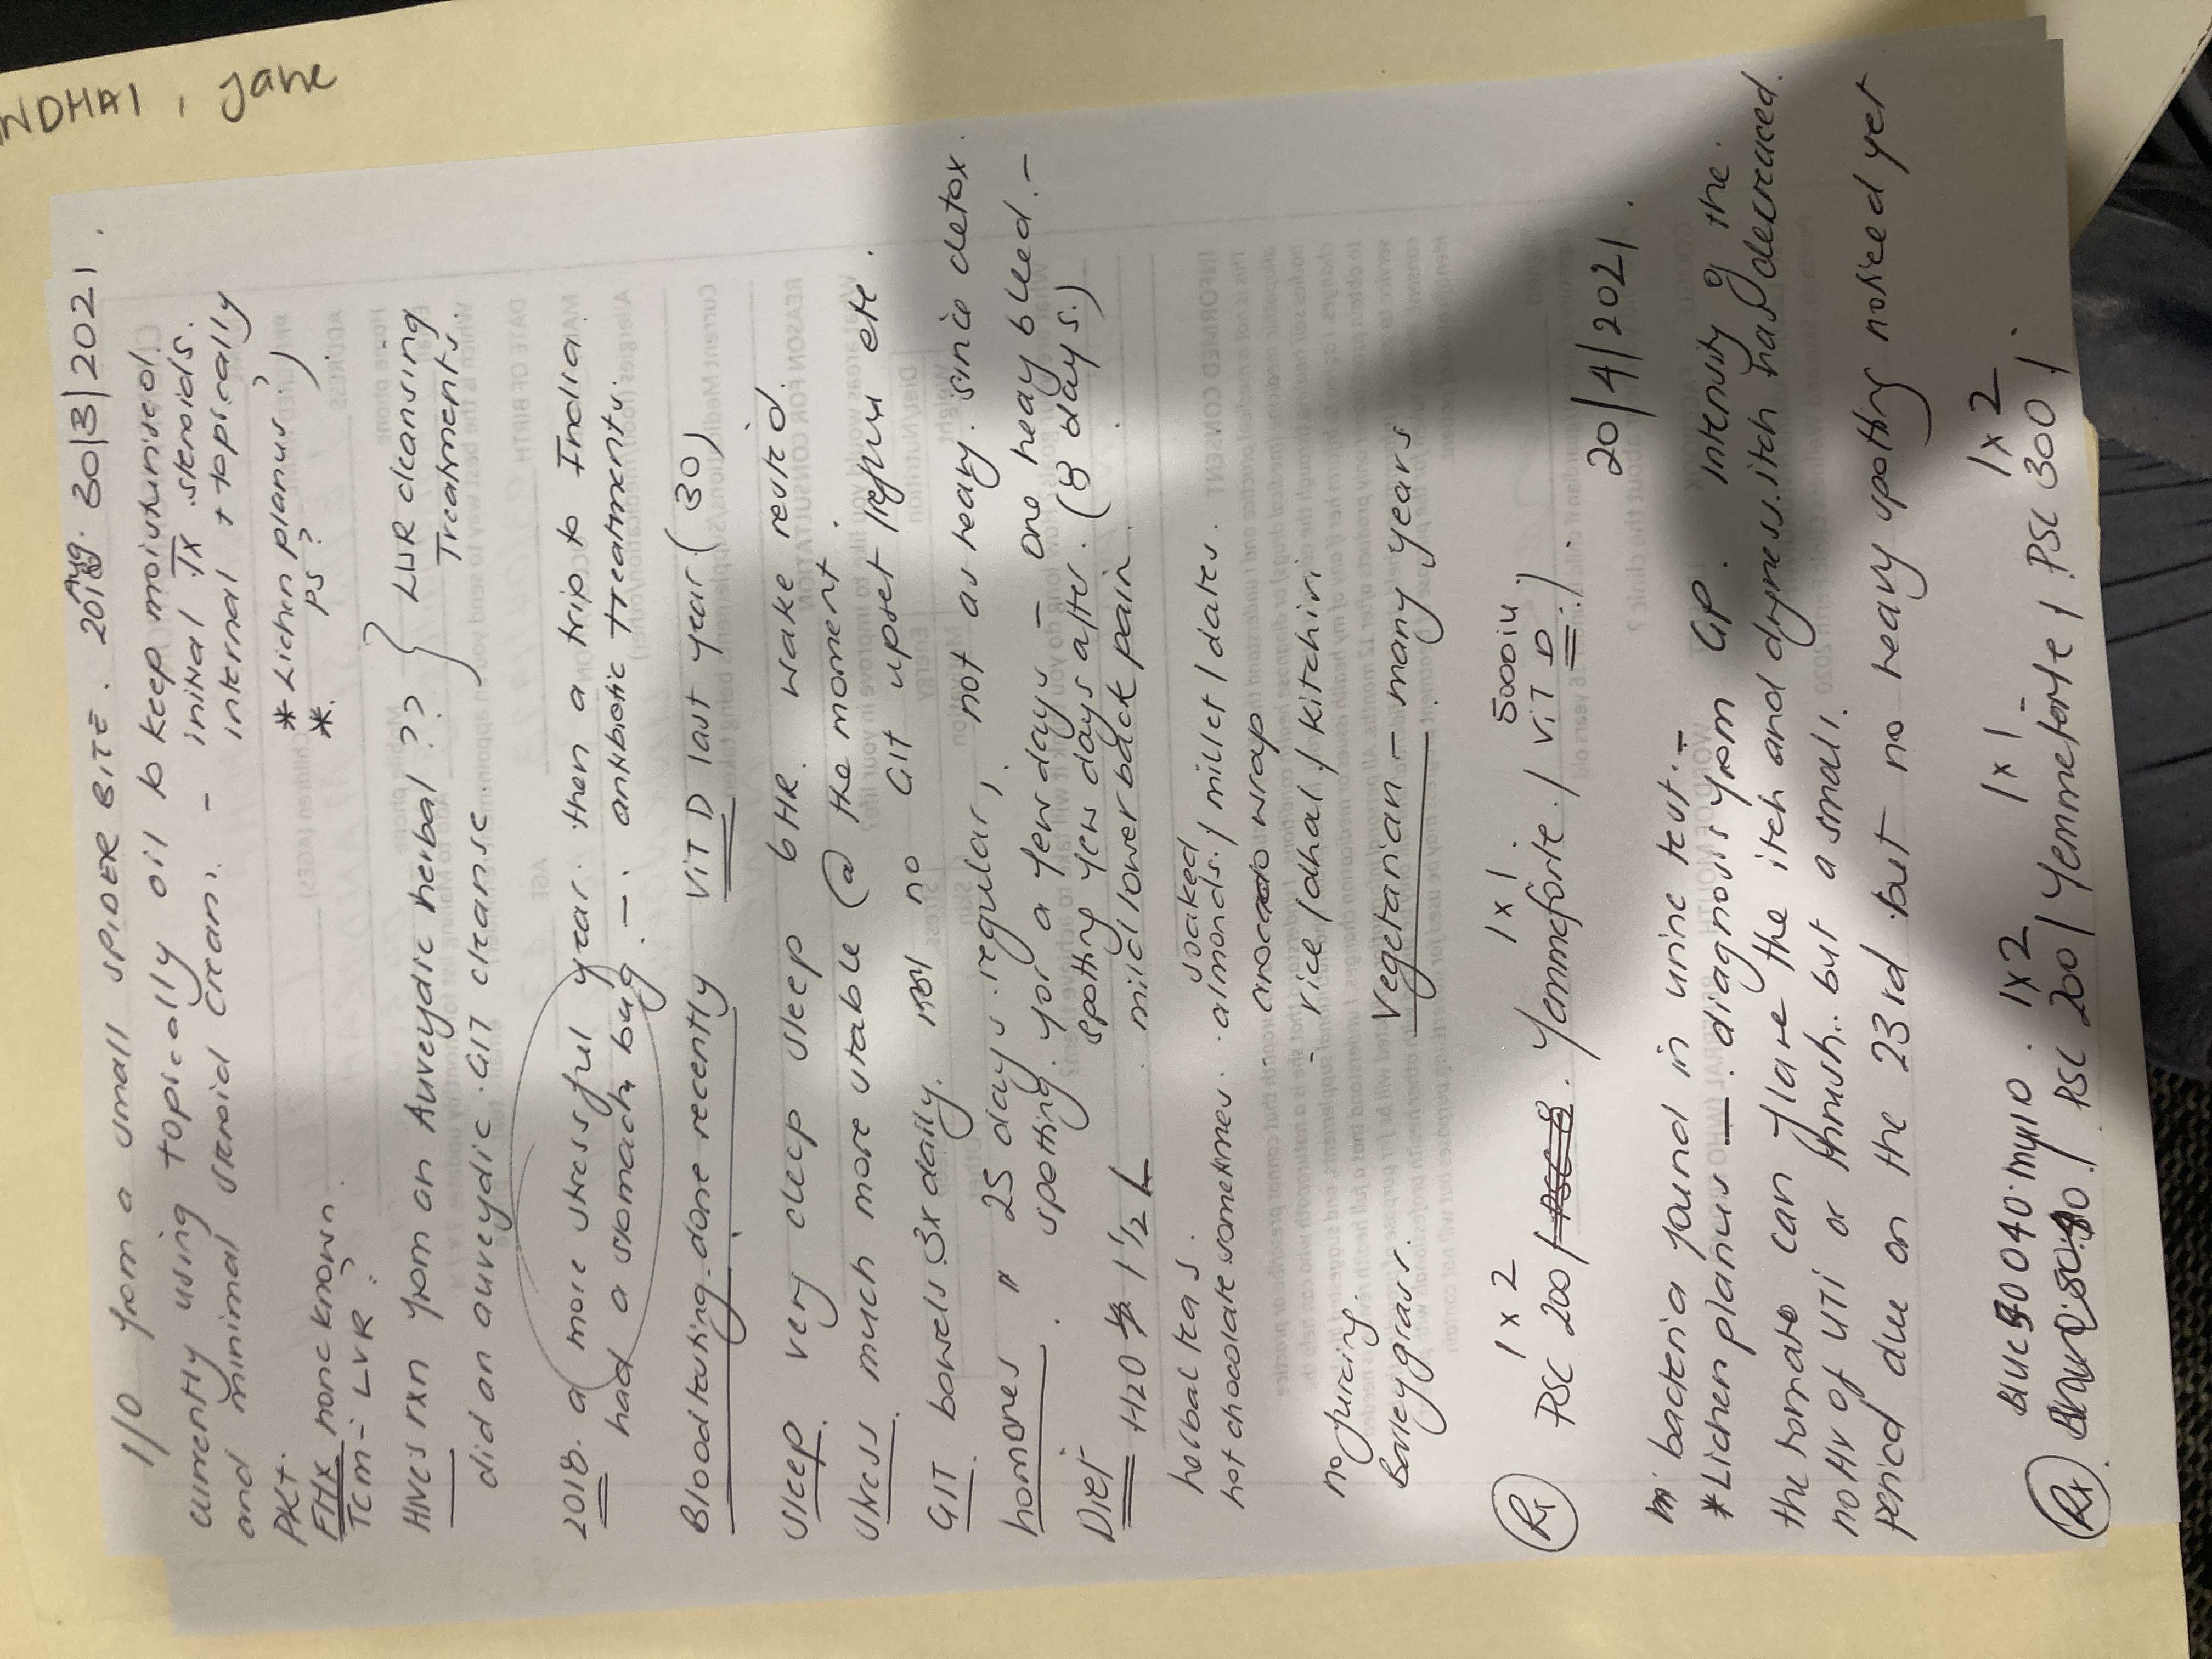 NDHAI, Jane
30/3/2021.
1/0 from a small SPIDER BITE. 2018 Aug.
currently using topically oil to keep moisturised
and minimal steroid cream. - initial Tx steroids.
internal + topically
PKt.
* Lichen planus?
FHx none known.
* PS?
TCM - LVR?
Hives rxn from an Auveydic herbal ?? } LVR cleansing
did an auveydic GIT cleanse. Treatments.
2018. a more stressful year. then a trip to India.
had a stomach bug. - antibiotic treatments.
Blood testing done recently VIT D last year (30)
Sleep. very deep sleep 6HR. wake revit'd.
stress. much more stable @ the moment.
GIT. bowels 3x daily. no GIT upset / reflux etc.
hormones " 25 days. regular, not as heavy. since detox.
spotting for a few days - one heavy bleed. -
spotting few days after. (8 days.)
mild lower back pain.
Diet. H2O 1½ L
herbal teas.
hot chocolate sometimes. soaked almonds. / millet / dates.
- wrap
no juicing. - rice / dhal / kitchiri
Barley grass. Vegetarian - many years
1x2 1x1 5000iu
Rx PSC 200 / PSC 8. Femmeforte. / VIT D :/
20/4/2021.
bacteria found in urine test. -
* Lichen planus - diagnosis from GP. Intensity of the
the tomato can flare the itch and dryness. itch has decreased.
no HX of UTI or thrush. but a small.
period due on the 23rd but no heavy spotting noticed yet
1x2 1x1 1x2
Rx PSC 200 / Femmeforte / PSC 300 /